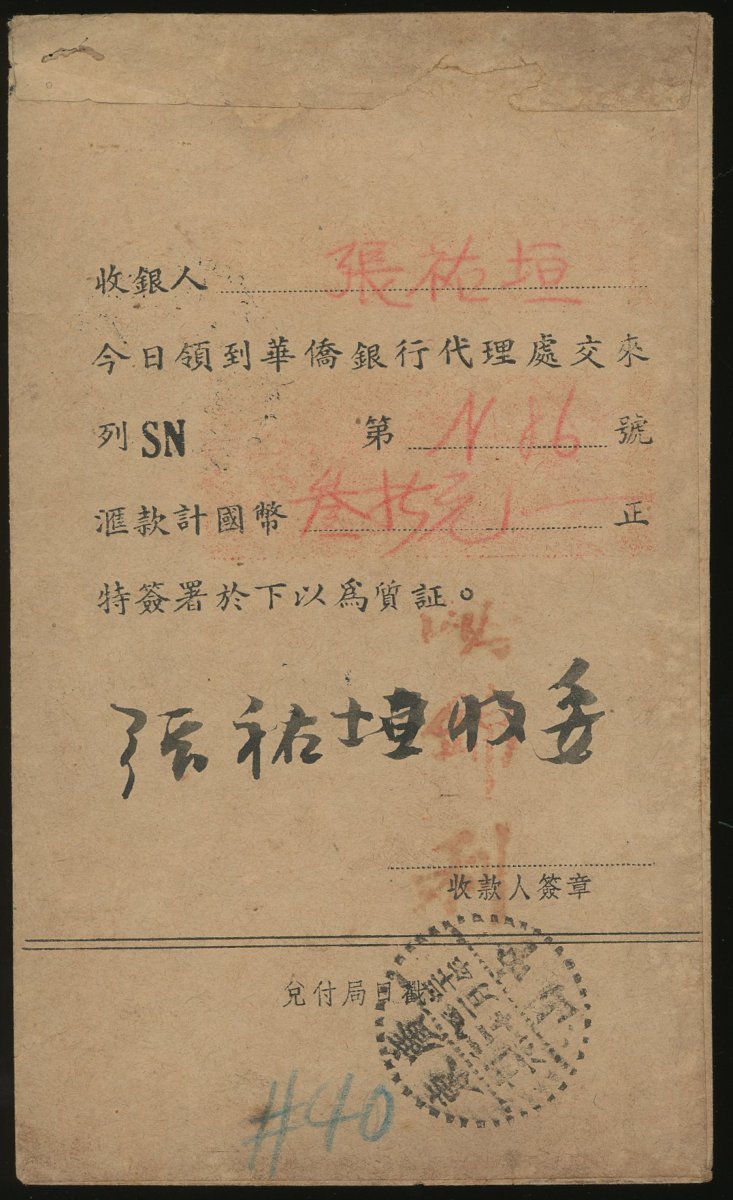 收銀人 張祐垣
今日領到華僑銀行代理處交來
列 SN 第 N 86 號
滙款計國幣 叁拾元 正
特簽署於下以爲質証。
張祐垣收
收款人簽章
兌付局日戳
廣東
#40